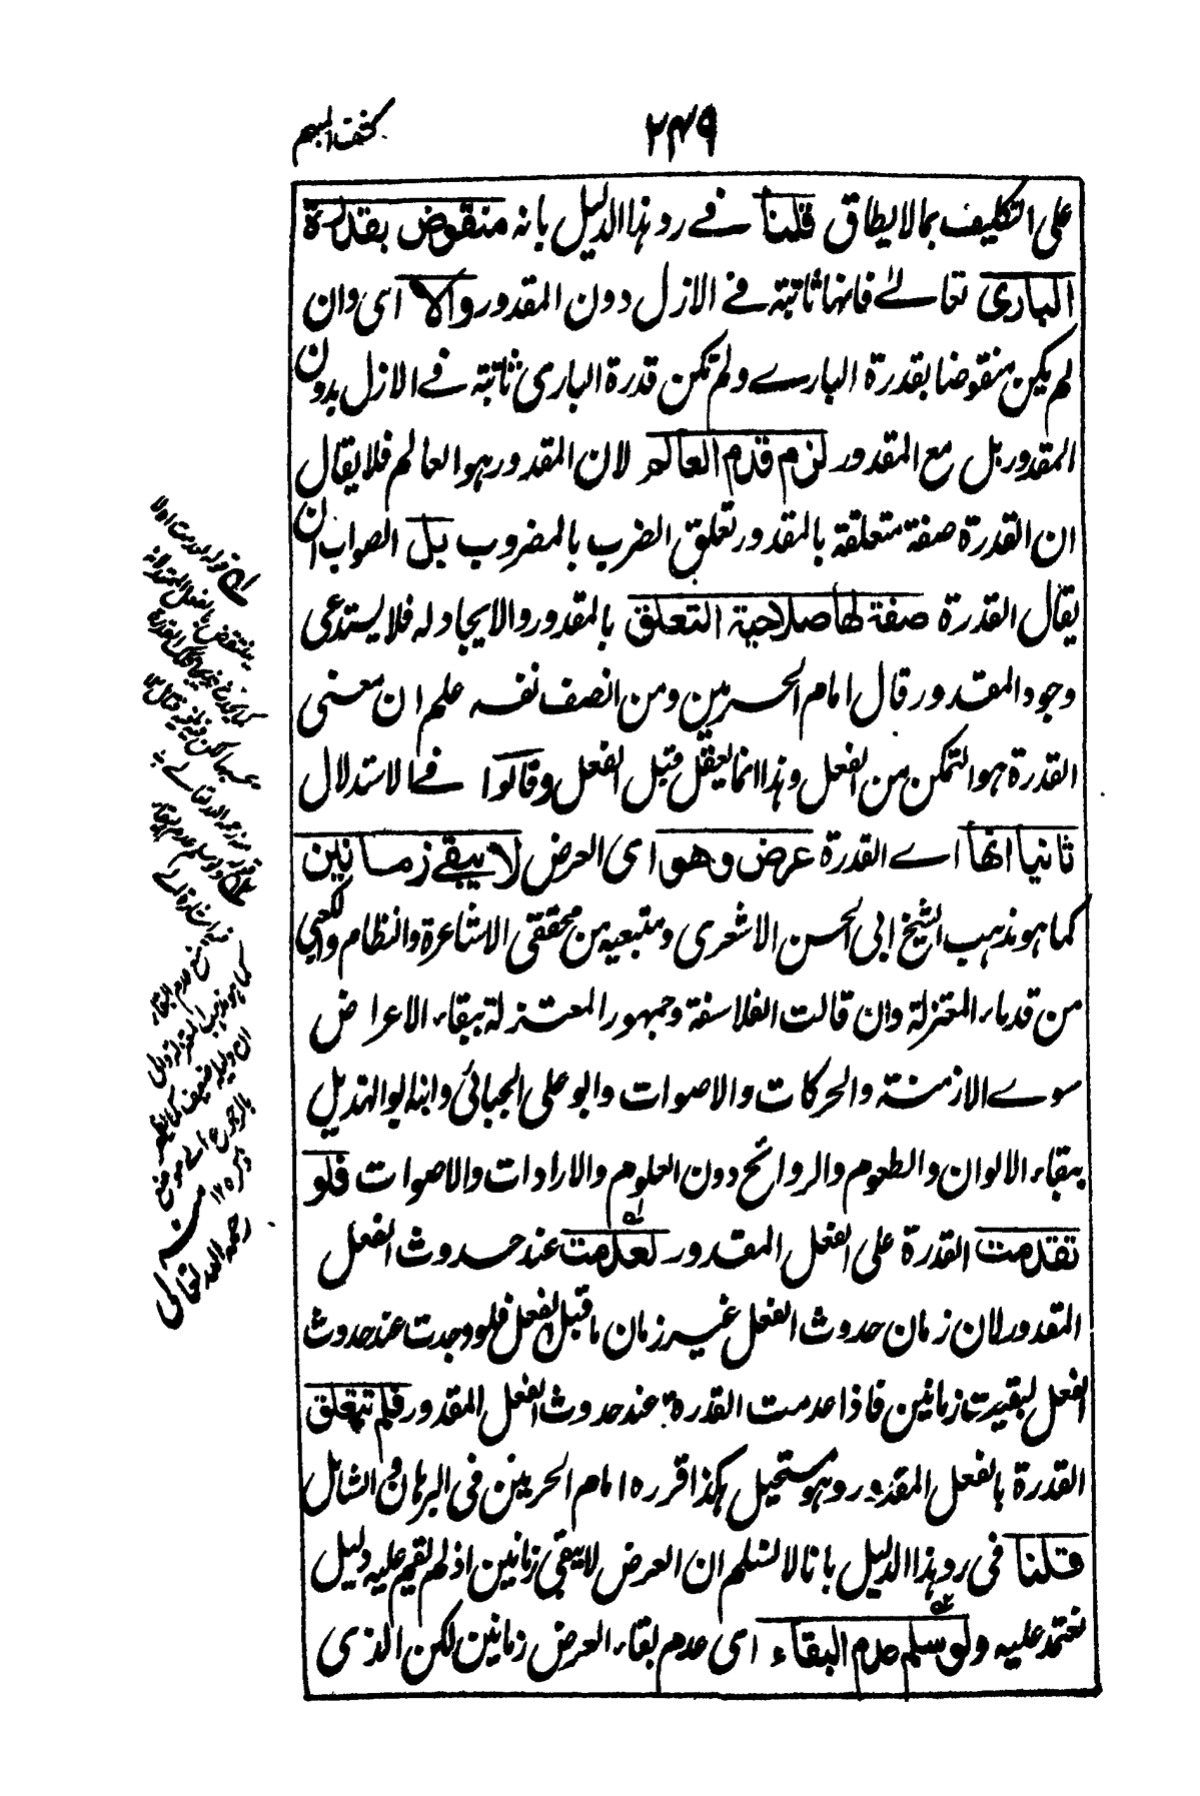 ٢٤٩
كشف المبهم
على التكليف بما لا يطاق قلنا فے رد هذا الدليل بانه منقوض بقدرة
البارى تعالے فانها ثابتة فے الازل دون المقدور والا اى وان
لم يكن منقوضا بقدرة البارے ولم تكن قدرة البارى ثابتة فے الازل بدون
المقدور بل مع المقدور لزم قدم العالم لان المقدور هو العالم فلا يقال
ان القدرة صفة متعلقة بالمقدور تعلق الضرب بالمضروب بل الصواب ان
يقال القدرة صفة لها صلاحية التعلق بالمقدور والايجاد له فلا يستدعى
وجود المقدور قال امام الحرمين ومن انصف نفسه علم ان معنى
القدرة هو التمكن من الفعل وهذا انما يعقل قبل الفعل وقالوا فے الاستدلال
ثانيا انها اے القدرة عرض وهو اى العرض لا يبقے زمانين
كما هو مذهب الشيخ ابى الحسن الاشعرى ومتبعيه من محققى الاشاعرة والنظام والكعبى
من قدماء المعتزلة وان قالت الفلاسفة وجمهور المعتزلة ببقاء الاعراض
سوے الازمنة والحركات والاصوات وابو على الجبائى وابنه ابو الهذيل
ببقاء الالوان والطعوم والروائح دون العلوم والارادات والاصوات فلو
تقدمت القدرة على الفعل المقدور لعدمت عند حدوث الفعل
المقدور لان زمان حدوث الفعل غير زمان ما قبل الفعل فلو وجدت عند حدوث
الفعل لبقيت زمانين فاذا عدمت القدرة عند حدوث الفعل المقدور فلم تتعلق
القدرة بالفعل المقدور وهو مستحيل هكذا قرره امام الحرمين فى البرهان و الشامل
قلنا فى رد هذا الدليل بانا لا نسلم ان العرض لا يبقى زمانين اذ لم يقم عليه دليل
نعتمد عليه ولو سلم عدم البقاء اى عدم بقاء العرض زمانين لكن الذى
قوله لعدمت
ينتقض بالفعل
قوله ولو سلم عدم البقاء
منع عدم البقاء
كما هو مذهب المعتزلة
ضعيف كما يظهر
بالرجوع الے
١٢ منه
رحمه الله تعالى